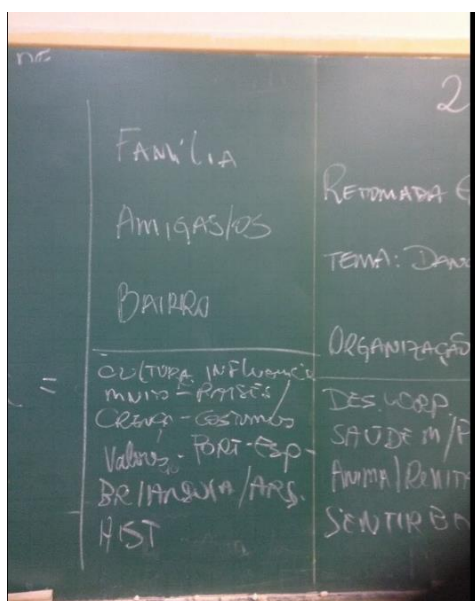 2
FAMÍLIA
AMIGAS/OS
BAIRRO
CULTURA INFLUENCI
PAÍSES/
CRENÇA - COSTUMES
Valores - PORT - ESP -
BR/ANGOLA/ARG.
HIST
RETOMADA
TEMA: DAN
ORGANIZAÇÃO
DES. CORP.
SAÚDE M/F
ANIMA/
SENTIR BE